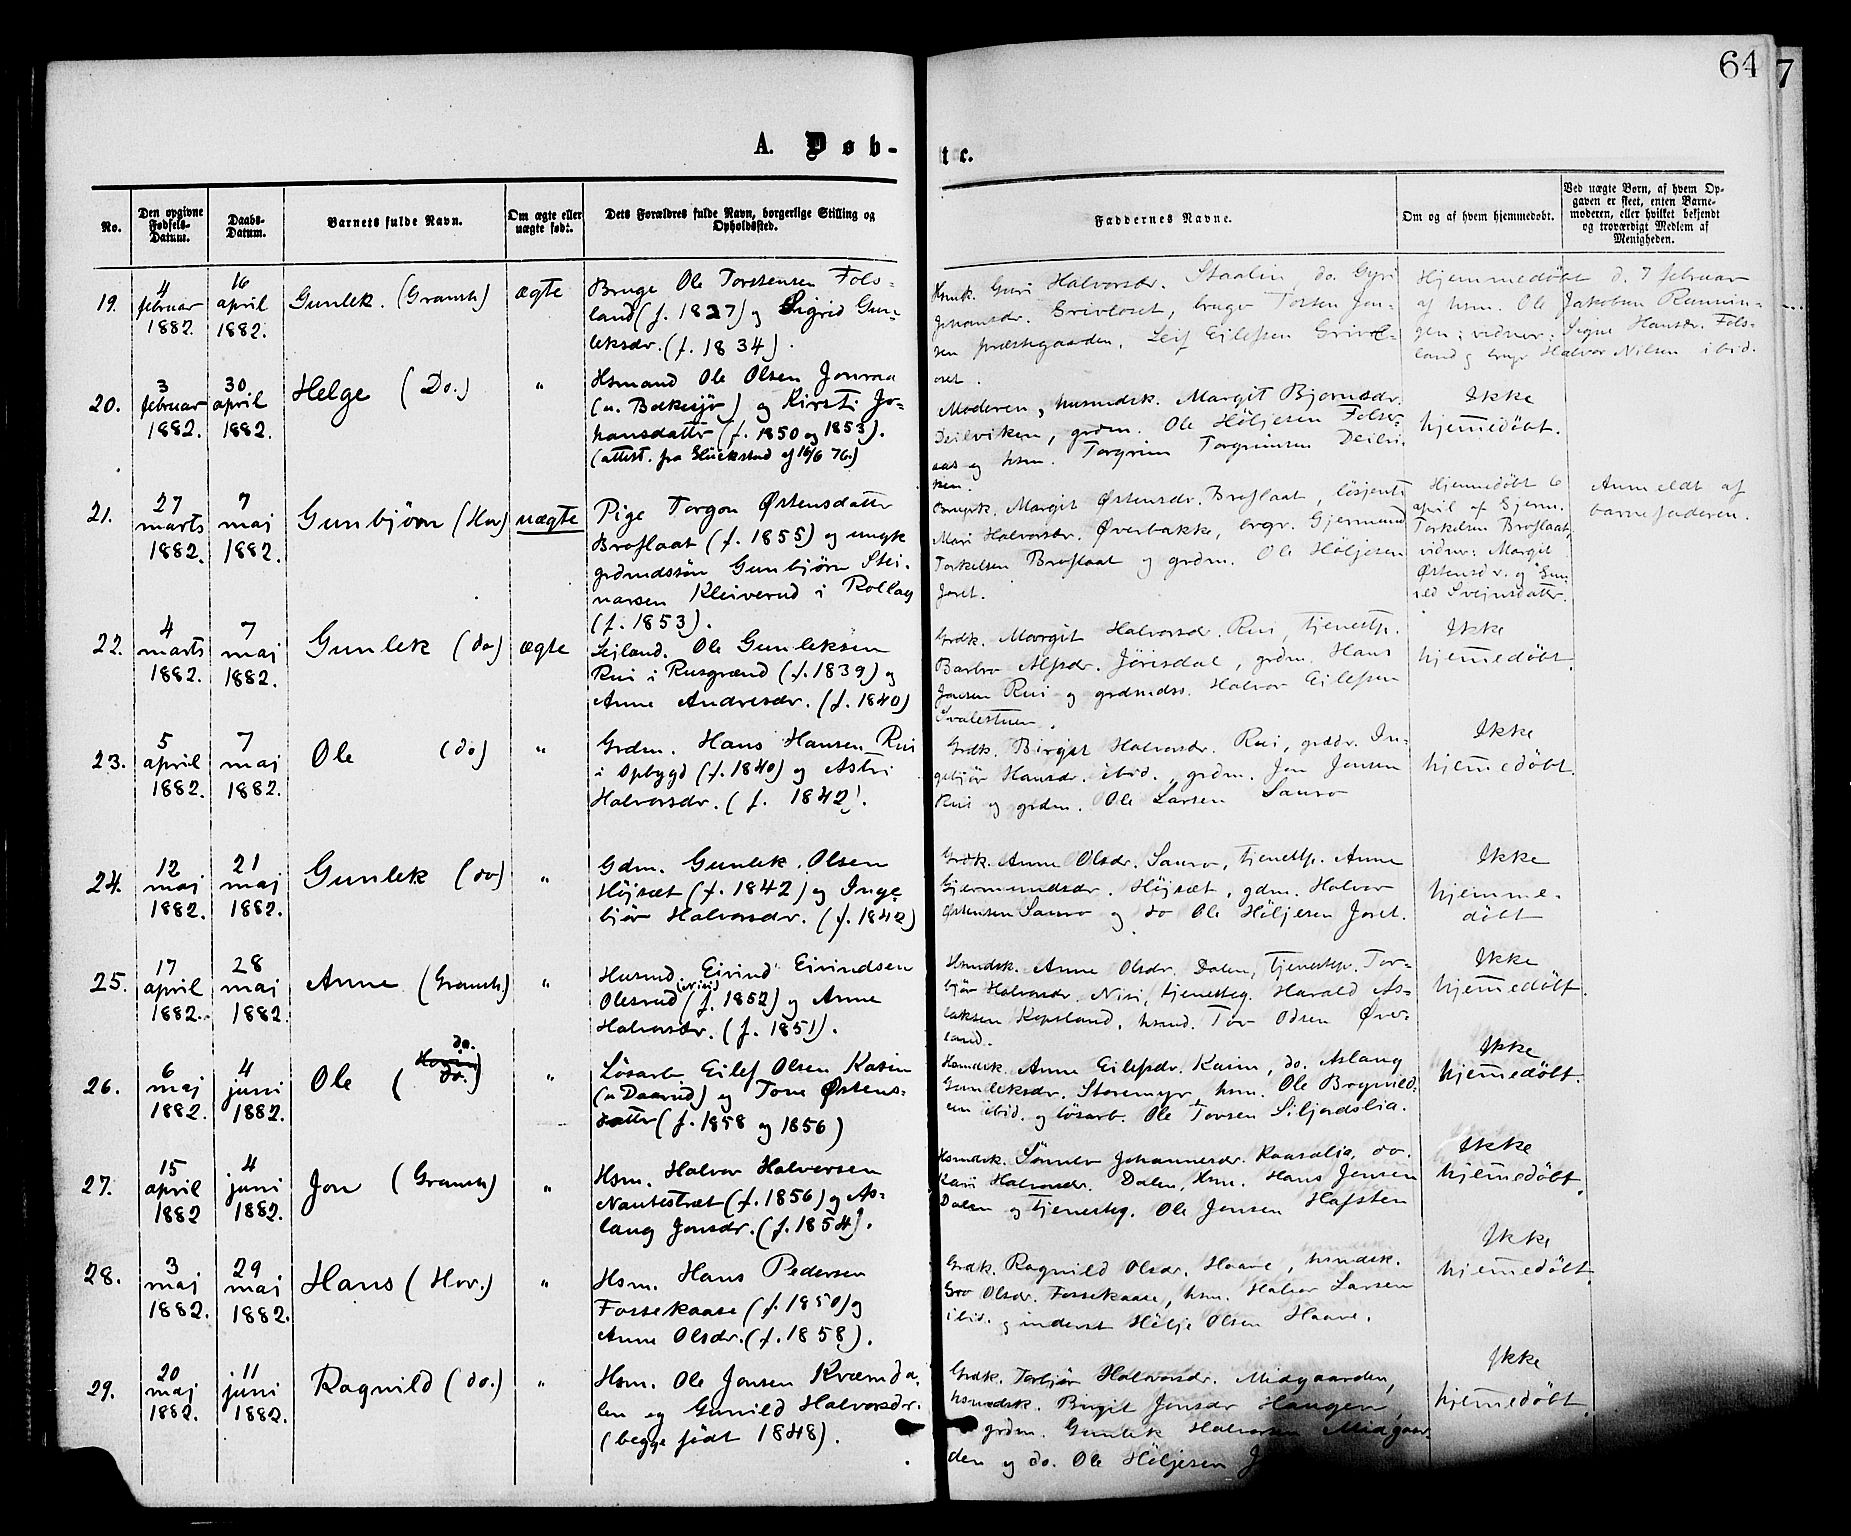 64
7
A. Døb-
te.
No.
Den opgivne Fødsels-Datum.
Daabs-Datum.
Barnets fulde Navn.
Om ægte eller uægte født.
Dets Forældres fulde Navn, borgerlige Stilling og Opholdssted.
Faddernes Navne.
Om og af hvem hjemmedøbt.
Ved uægte Børn, af hvem Opgaven er skeet, enten Barnemoderen, eller hvilket bekjendt og troværdigt Medlem af Menigheden.
19.
4 februar 1882.
16 april 1882.
Gunlek. (Gransh.)
ægte
Bruge Ole Torstensen Fols-
land (f. 1827) og Sigrid Gun-
leksdr. (f. 1834).
Hsmk. Guri Halvorsdr. Staalin, do. Gyri
Johansdr. Grivloset, bruger Tosten Jon-
sen præstegaarden, Leif Eilefsen Grivol-
oset.
Hjemmedøbt d. 7 februar
af hsm. Ole Jakobsen Rannin-
gen; vidner: Signe Hansdr. Fols-
land og brugr Halvor Nilsen ibid.
20.
3 februar 1882.
30 april 1882.
Helge (Do.)
"
Hsmand Ole Olsen Jonraa
(u. Bolkesjø) og Kirsti Jo-
hansdatter (f. 1850 og 1853).
(attest. fra Glückstad af 16/6 76.)
Moderen, husmdsk. Margit Bjørnsdr.
Deilviken, grdm. Ole Høljesen Folser-
aas og hsm. Torgrim Torgrimsen Deilvi-
ken.
Ikke
hjemmedøbt.
21.
27 marts 1882.
7 maj 1882.
Gunbjørn (Hov)
uægte
Pige Torgon Østensdatter
Broflaat (f. 1855) og ungk
grdmdssøn Gunbjørn Stei-
narsen Kleiverud i Rollag
(f. 1853).
Brugrk. Margit Østensdr. Broflaat, løsjente
Mari Halvorsdr. Øverbakke, brgr. Gjermund
Torkelsen Broflaat og grdm. Ole Høljesen
Joret.
Hjemmedøbt 6
april af Gjerm.
Torkelsen Broflaat,
vidner: Margit
Østensdr. og Gun-
ild Svejnsdatter.
Anmeldt af
barnefaderen.
22.
4 marts 1882.
7 maj 1882.
Gunlek (do)
ægte
Lejland. Ole Gunleksen
Rui i Rusgrænd (f. 1839) og
Anne Andresdr. (f. 1840)
Grdk. Margit Halvorsdr. Rui, tjenestp.
Barbro Alfsdr. Jørisdal, grdm. Hans
Jonsen Rui og grdmdss. Halvor Eilefsen
Svalestuen.
Ikke
hjemmedøbt.
23.
5 april 1882.
7 maj 1882.
Ole (do)
"
Grdm. Hans Hansen Rui
i Opbygd (f. 1840) og Aslei
Halvorsdr. (f. 1842).
Grdk. Birgit Halvorsdr. Rui, grddr. In-
gebjør Hansdr. ibid., grdm. Jon Jonsen
Rui og grdm. Ole Larsen Sauro
Ikke
hjemmedøbt.
24.
12 maj 1882.
21 maj 1882.
Gunlek (do)
"
Gdm. Gunlek Olsen
Højsæt (f. 1842) og Inge-
bjør Halvorsdr. (f. 1842)
Grdk. Anne Olsdr. Sauro, tjenestp. Anne
Gjermundsdr. Højsæt, gdm. Halvor
Østensen Sauro og do Ole Høljesen Joret.
Ikke
hjemme-
døbt
25.
17 april 1882.
28 maj 1882.
Anne (Gransh.)
"
Husmd. Eivind Eivindsen
Olesrud (Nisi) (f. 1852) og Anne
Halvorsdr. (f. 1851).
Hsmdsk. Anne Olsdr. Dalen, tjenestp. Tor-
bjør Halvorsdr. Nisi, tjenesteg. Harald As-
laksen Kopsland, hsmd. Tov Odsen Øver-
land.
Ikke
hjemmedøbt.
26.
6 maj 1882.
4 juni 1882.
Ole (do.)
"
Løsarb. Eilef Olsen Kasin
(u Daarud) og Tone Østens-
datter (f. 1858 og 1856)
Hsmdsk. Anne Eilefsdr. Kasin, do. Aslaug
Gunleksdr. Storemyr, hsm. Ole Bognild-
en ibid. og løsarb. Ole Tovsen Siljordslia.
Ikke
hjemmedøbt.
27.
15 april 1882
4 juni 1882.
Jon (Gransh)
"
Hsm. Halvor Halvorsen
Nautestræt (f. 1856) og As-
laug Jonsdr. (f. 1854).
Hsmdsk. Sønnev Johannesdr. Kaasalia, do.
Kari Halvorsdr. Dalen, hsm. Hans Jensen
Dalen og tjenesteg. Ole Jensen Hafsten
Ikke
hjemmedøbt.
28.
3 maj 1882.
29 maj 1882.
Hans (Hov.)
"
Hsm. Hans Pedersen
Fossekaase (f. 1850) og
Anne Olsdr. (f. 1858).
Grdk. Ragnild Olsdr. Haave, hsmdsk.
Gro Olsdr. Fossekaase, hsm. Halvor Larsen
ibid. og inderst Hølje Olsen Haave.
Ikke
hjemmedøbt.
29.
20 maj 1882.
11 juni 1882.
Ragnild (do.)
"
Hsm. Ole Jonsen Kvæmda-
len og Gunild Halvorsdr.
(begge født 1848).
Grdk. Torbjør Halvorsdr. Midgaarden,
hsmdsk. Birgit Jonsdr Haugen,
grdm. Gunlek Halvorsen Midgaar-
den og do. Ole Høljesen
Ikke
hjemmedøbt.